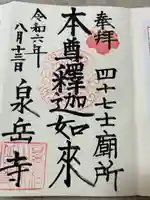 奉拝
四十七士廟所
本尊釋迦如來
令和六年
八月十三日
泉岳寺